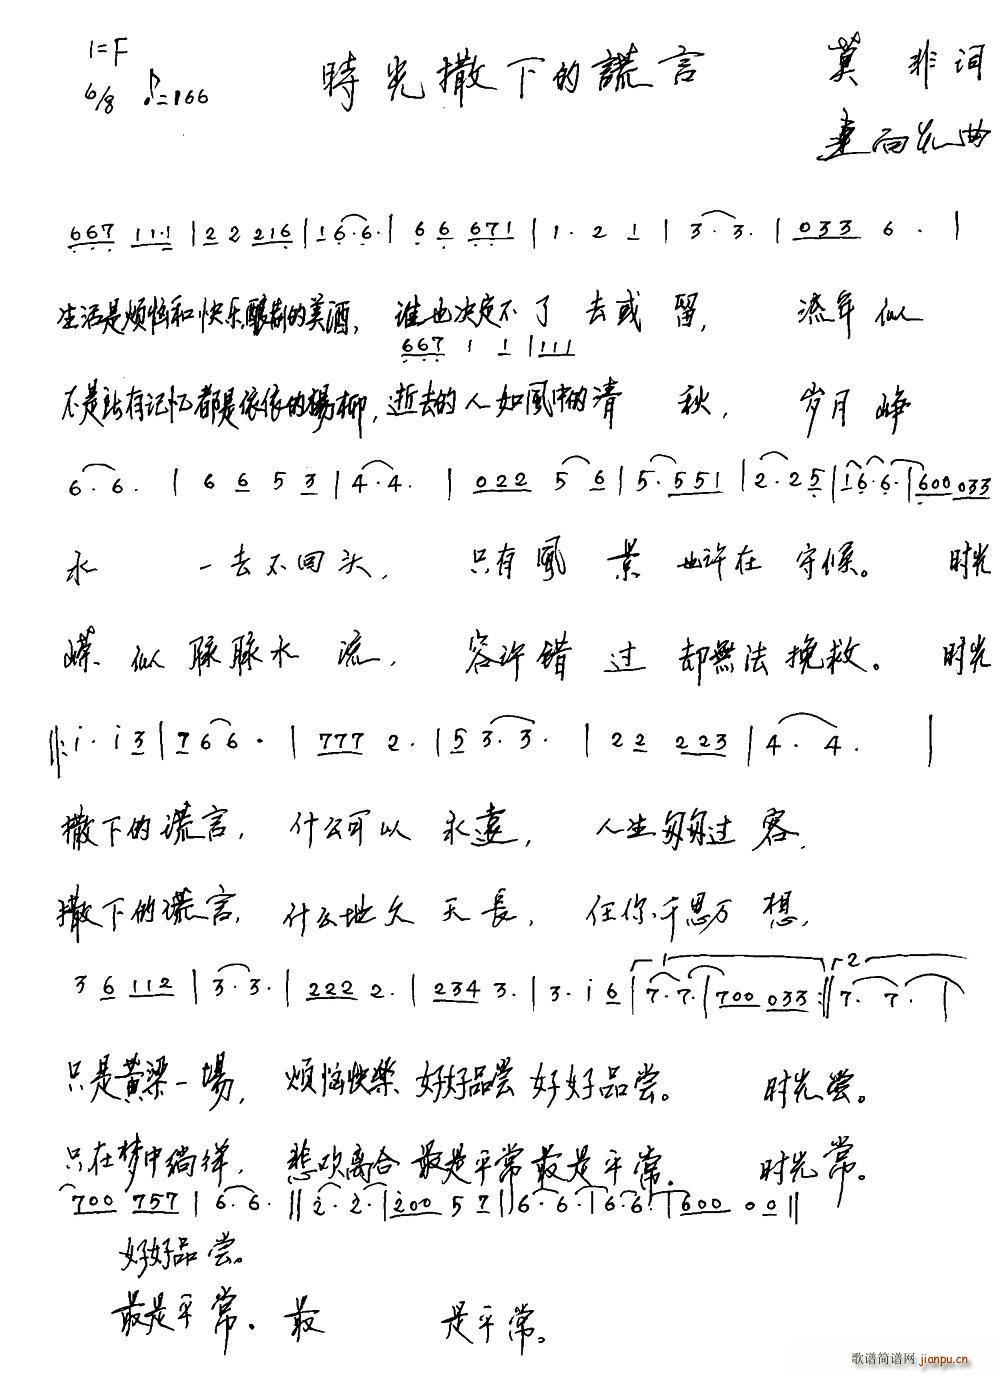 1=F
時光撒下的謊言 莫非词
6/8 ♪=166
向 曲
667 111 | 2 2 216 | 1 6· 6· | 6 6 671 | 1· 2 1 | 3· 3· | 033 6 · |
生活是烦恼和快乐酿制的美酒, 谁也决定不了 去或 留, 流年 似
667 1 1 | 111
不是所有记忆都是依依的楊柳, 逝去的人如風中的清 秋, 岁月 峥
6· 6· | 6 6 5 3 | 4· 4· | 022 5 6 | 5· 551 | 2· 25 | 1 6· 6· | 600 033
水 一去不回头, 只有風 景 也许在 守候。 时光
嵘 似 脉脉水 流, 容许錯 过 却無法挽救。 时光
‖: i· i 3 | 7 6 6 · | 777 2· | 5 3· 3· | 22 223 | 4· 4· |
撒下的谎言, 什么可以 永遠, 人生匆匆过 客,
撒下的谎言, 什么地久 天長, 任你千思万 想,
3 6 112 | 3· 3· | 222 2· | 234 3· | 3· i 6 | 1 7· 7· | 700 033 :‖ 2 7· 7· |
只是黄梁一場, 烦恼快樂 好好品尝 好好品尝。 时光 尝。
只在梦中徜徉, 悲欢离合 最是平常 最是平常. 时光 常。
700 757 | 6· 6· ‖ 2· 2· | 200 5 7 ‖ 6· 6· | 6· 6· | 600 00 ‖
好好品 尝。
最是平 常. 最 是平常。
歌谱简谱网 jianpu.cn